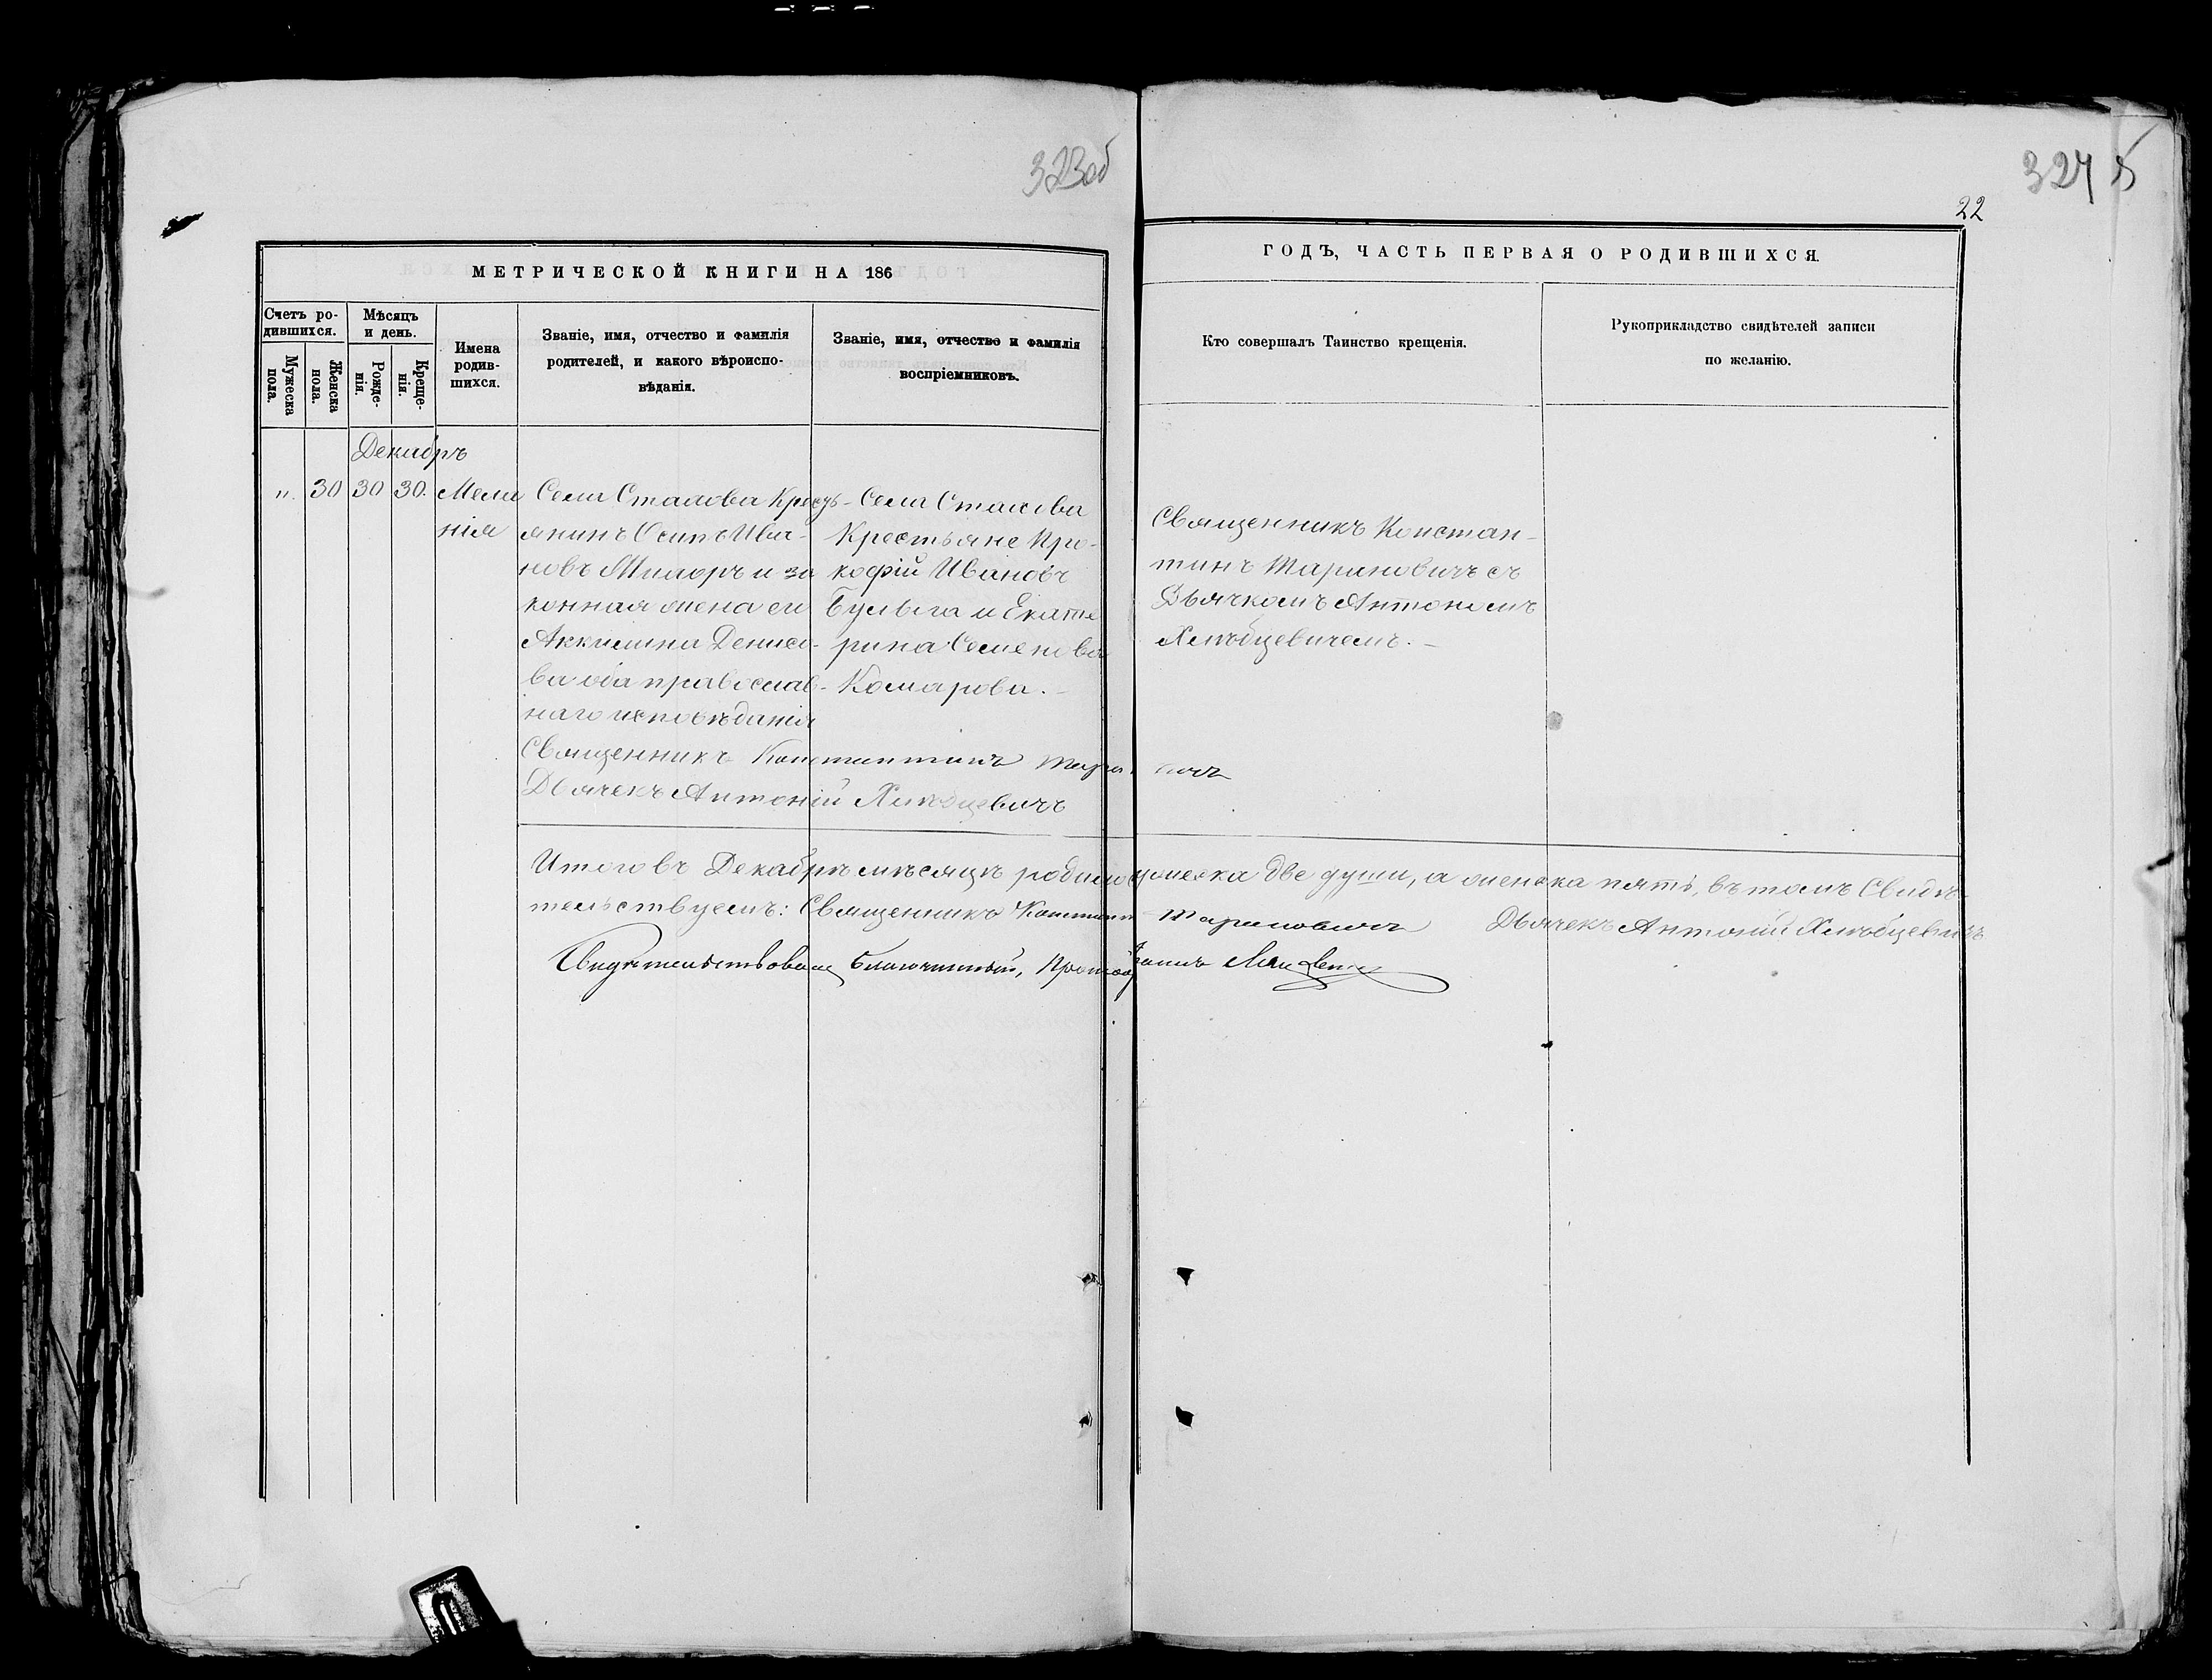 323об
324 5
22
МЕТРИЧЕСКОЙ КНИГИ НА 186
ГОДЪ, ЧАСТЬ ПЕРВАЯ О РОДИВШИХСЯ.
Счетъ ро-
дившихся.
Мужеска
пола.
Женска
пола.
Мѣсяцъ
и день.
Рожде-
нія.
Креще-
нія.
Имена
родив-
шихся.
Званіе, имя, отчество и фамилія
родителей, и какого вѣроиспо-
вѣданія.
Званіе, имя, отчество и фамилія
воспріемниковъ.
Кто совершалъ Таинство крещенія.
Рукоприкладство свидѣтелей записи
по желанію.
Декабрь
" 30 30 30. Мела
нія
Села Сталова Кресть-
янинъ Осипъ Ива-
новъ и за
конная жена его
Акилина Денисо-
ва оба православ-
наго исповѣданія
Села Сталова
Крестьяне Про-
кофій Ивановъ
Бульга и Екате
рина Семенова
Комарова.
Священникъ Констан-
тинъ Тарановичъ съ
Дьячкомъ Антоніемъ
Хлѣбцевичемъ.
Священникъ Константинъ Тарановичъ
Дьячекъ Антоній Хлѣбцевичъ
Итого въ Декабрѣ мѣсяцѣ родилось мужеска две души, а женска пять, въ томъ Свидѣ-
тельствуемъ: Священникъ Константинъ Тарановичъ Дьячекъ Антоній Хлѣбцевичъ
Свидѣтельствовалъ Благочинный,